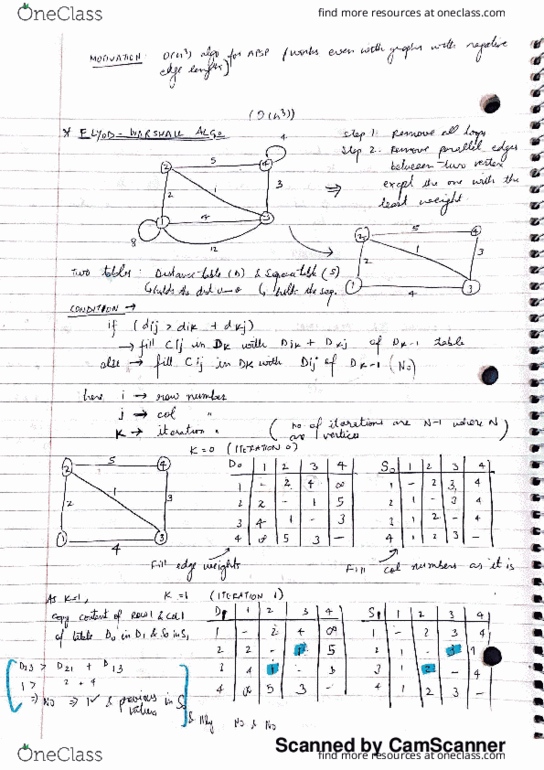 OneClass
find more resources at oneclass.com
MOTIVATION: O(n³) algo for APSP (works even with graphs with negative
edge lengths)
(O(n³))
* FLYOD-WARSHALL ALGO
Step 1: Remove all loops
Step 2: Remove parallel edges
between two vertex
except the one with the
least weight.
2 5 4 4
2 1 3
1 4 3
8 12
⇒
2 5 4
2 1 3
1 4 3
Two tables: Distance table (D) & Sequence table (S)
↳ holds the dist ↳ holds the seq.
CONDITION →
if (dij > dik + dkj)
→ fill Cij in DK with Dik + Dkj of DK-1 table
else → fill Cij in DK with Dij of DK-1 (No)
here i → row number
j → col "
K → iteration "
(no. of iterations are N-1 where N
are vertices)
K=0 (ITERATION 0)
2 5 4
2 1 3
1 4 3
D0 1 2 3 4
1 - 2 4 ∞
2 2 - 1 5
3 4 1 - 3
4 ∞ 5 3 -
S0 1 2 3 4
1 - 2 3 4
2 1 - 3 4
3 1 2 - 4
4 1 2 3 -
Fill edge weights
Fill col numbers as it is
As K=1,
K=1 (ITERATION 1)
copy content of row 1 & col 1
of table D0 in D1 & S0 in S1
D23 > D21 + D13
1 > 2 + 4
⇒ No ⇒ 1 & previous values in S0
& llly No & No
D1 1 2 3 4
1 - 2 4 ∞
2 2 - 1 5
3 4 1 - 3
4 ∞ 5 3 -
S1 1 2 3 4
1 - 2 3 4
2 1 - 3
3 1 2 - 4
4 1 2 3 -
Scanned by CamScanner
OneClass
find more resources at oneclass.com